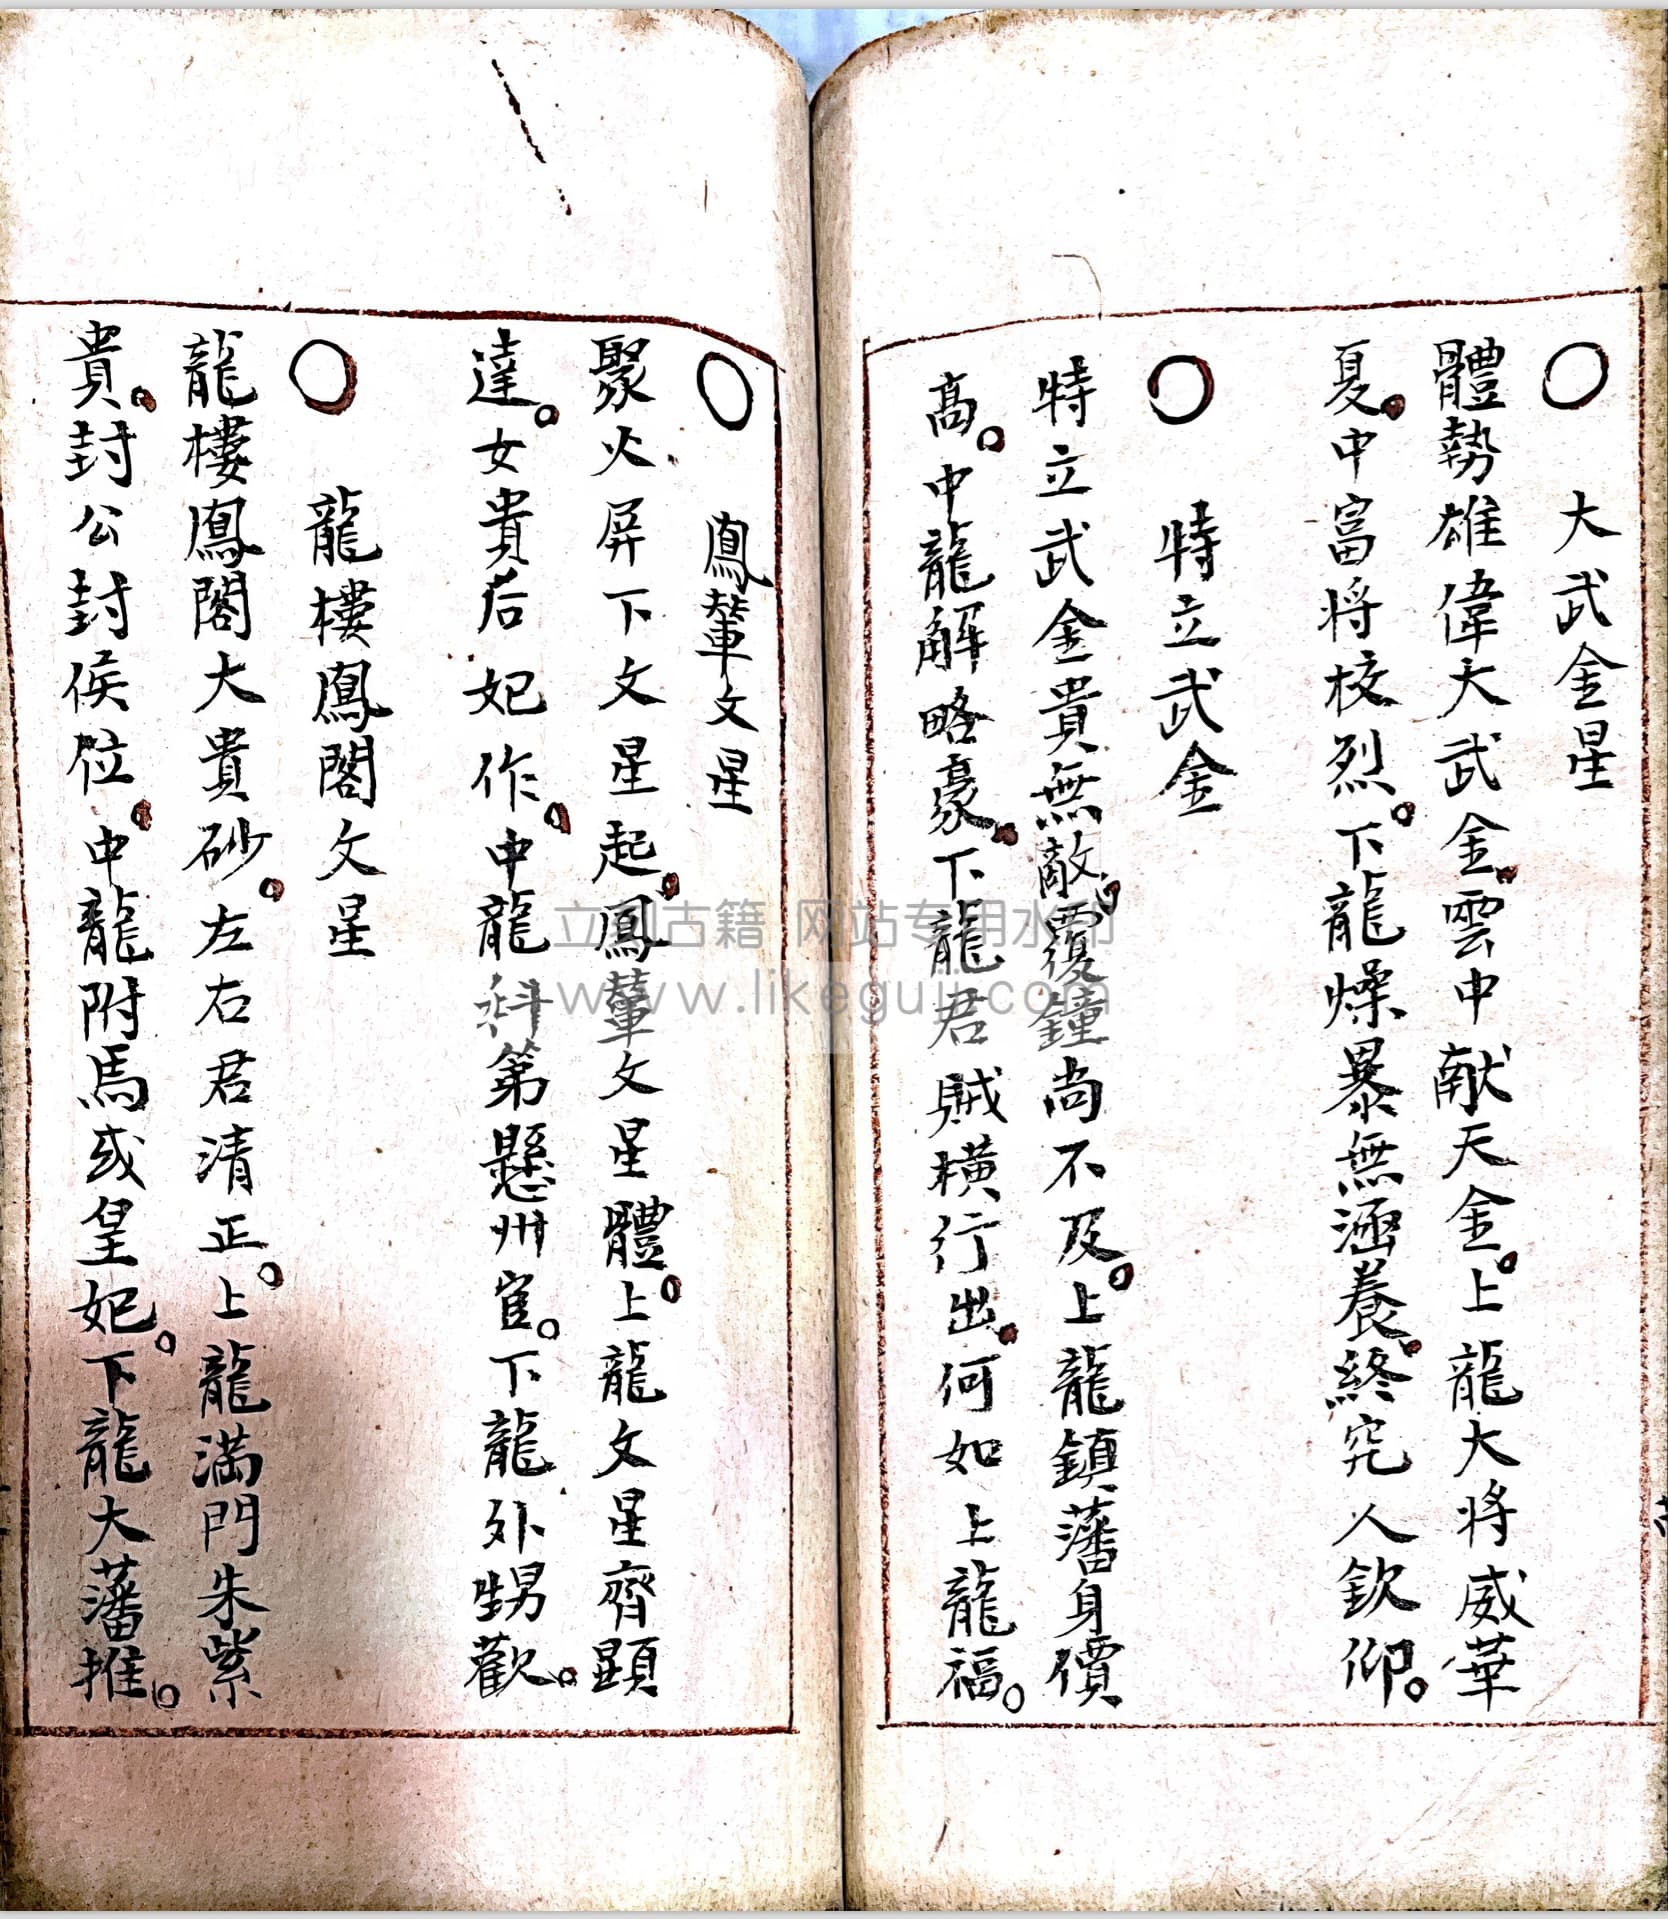 ○ 大武金星
體勢雄偉大武金。雲中献天金。上龍大将威華
夏。中富将校烈。下龍燥暴無涵養。終究人欽仰。
○ 特立武金
特立武金貴無敵。覆鐘尚不及。上龍鎮藩身價
高。中龍解略豪。下龍君賊橫行出。何如上龍福。
○ 鳳輦文星
聚火屏下文星起。鳳輦文星體。上龍文星齊顕
達。女貴后妃作。中龍科第懸州官。下龍外甥歡。
○ 龍樓鳳閣文星
龍樓鳳閣大貴砂。左右君清正。上龍満門朱紫
貴。封公封侯位。中龍附馬或皇妃。下龍大藩推。
立刻古籍 网站专用水印
www.likeguji.com